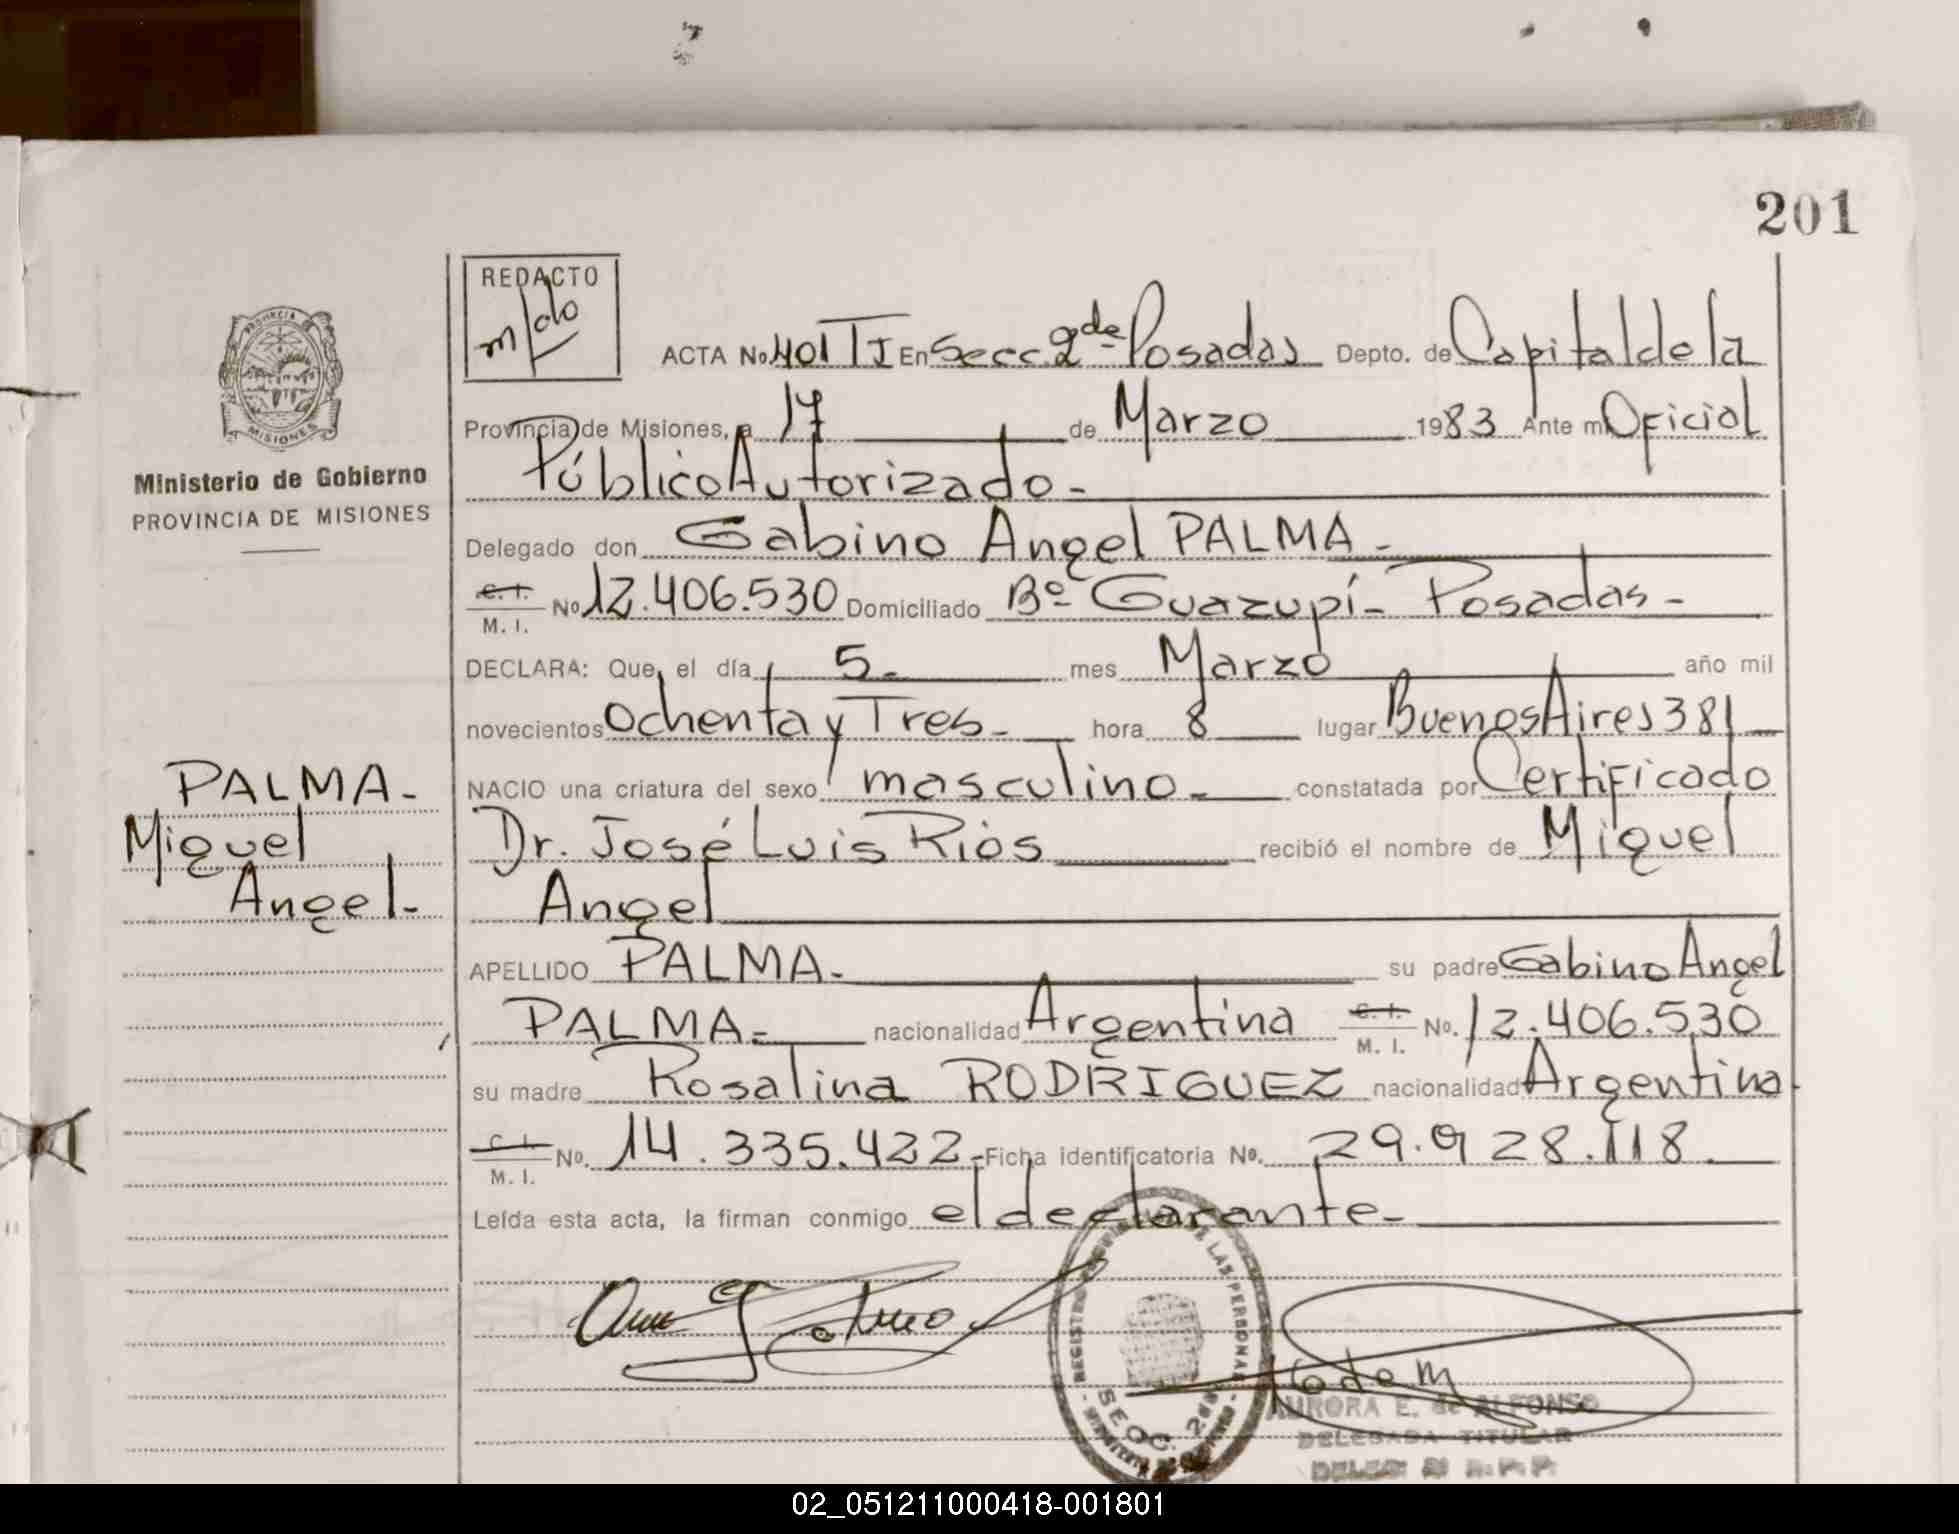 201
REDACTO
ACTA No. 401 TI En Secc. 2da Posadas Depto. de Capital de la
Provincia de Misiones, a 17 de Marzo 1983 Ante mi Oficial
PROVINCIA DE
MISIONES
Ministerio de Gobierno
PROVINCIA DE MISIONES
Público Autorizado-
Delegado don Gabino Angel PALMA-
C. I.
M. I. No 12.406.530 Domiciliado Bº Guazupí- Posadas-
DECLARA: Que, el día 5- mes Marzo año mil
novecientos Ochenta y Tres- hora 8 lugar Buenos Aires 381
NACIO una criatura del sexo masculino- constatada por Certificado
Dr. José Luis Rios recibió el nombre de Miguel
Angel
PALMA-
Miguel
Angel-
APELLIDO PALMA- su padre Gabino Angel
PALMA- nacionalidad Argentina C. I.
M. I. No. 12.406.530
su madre Rosalina RODRIGUEZ nacionalidad Argentina
C. I.
M. I. No. 14.335.422- Ficha identificatoria No. 29.928.118
Leída esta acta, la firman conmigo el declarante-
REGISTRO PROVINCIAL DE LAS PERSONAS
SECC. 2da
AURORA E. de ALFONSO
DELEGADA TITULAR
02_051211000418-001801